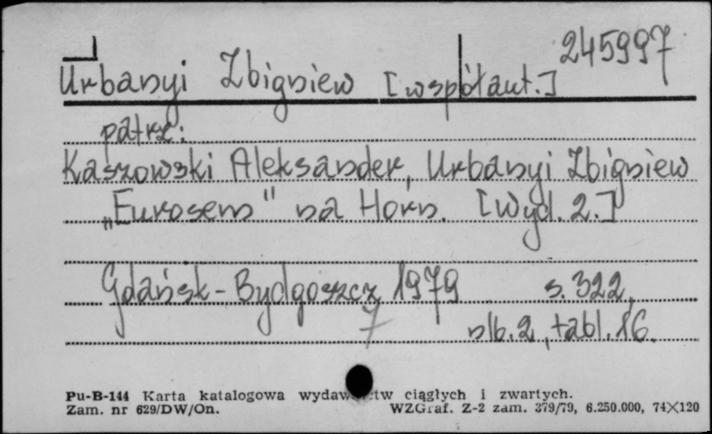 245997
Urbanyi Zbigniew [współaut.]
patrz:
Kaszowski Aleksander, Urbanyi Zbigniew
„Eurosem" na Horn. [Wyd. 2.]
Gdańsk-Bydgoszcz 1979 s. 322,
nlb. 2, tabl. 16.
7
Pu-B-144 Karta katalogowa wydawnictw ciągłych i zwartych.
Zam. nr 629/DW/On. WZGraf. Z-2 zam. 379/79, 6.250.000, 74×120